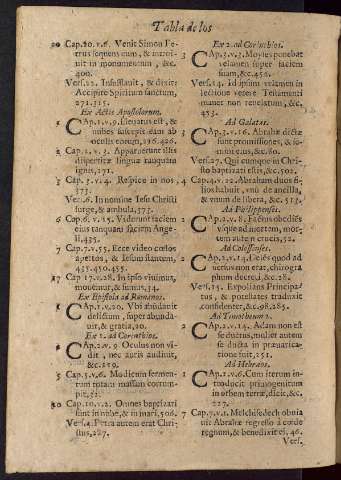 Tabla de los
20 Cap. 20. v. 6. Venit Simon Pe-
trus sequens eum, & introi-
uit in monumentum, &c.
400.
Vers. 22. Insuflauit, & dixit:
Accipite Spiritum sanctum,
271. 315.
Ex Actis Apostolorum.
CAp. 1. v. 9. Eleuatus est, &
nubes suscepit eum ab
oculis eorum, 116. 426.
2 Cap. 2. v. 3. Apparuerunt illis
dispertitæ linguæ tanquam
ignis, 171.
3 Cap. 3. v. 4. Respice in nos,
373.
Ver. 6. In nomine Iesu Christi
surge, & ambula, 373.
6 Cap. 6. v. 15. Viderunt faciem
eius tanquam faciem Ange-
li, 435.
7 Cap. 7. v. 55. Ecce video cœlos
apertos, & Iesum stantem,
435. 450. 455.
17 Cap. 17. v. 28. In ipso viuimus,
mouemur, & sumus, 34.
Ex Epistola ad Romanos.
5 CAp. 5. v. 20. Vbi abundauit
delictum, superabunda-
uit, & gratia, 20.
Ex 1. ad Corinthios.
2 CAp. 2. v. 9. Oculus non vi-
dit, nec auris audiuit,
&c. 250.
5 Cap. 5. v. 6. Modicum fermen-
tum totam massam corrum-
pit,
10 Cap. 10. v. 2. Omnes baptizati
sunt in nube, & in mari, 506.
Vers. 4. Petra autem erat Chri-
stus, 227.
Ex 2. ad Corinthios.
3 CAp. 3. v. 13. Moyses ponebat
velamen super faciem
suam, &c. 452.
Vers. 14. Id ipsum velamen in
lectione veteris Testamenti
manet non reuelatum, &c.
453.
Ad Galatas.
3 CAp. 3. v. 16. Abrahæ dictæ
sunt promissiones, & se-
mini eius, &c. 80.
Vers. 27. Qui cumque in Chri-
sto baptizati estis, &c. 502.
4 Cap. 4. v. 22. Abraham duos fi-
lios habuit, vnũ de ancilla,
& vnum de libera, &c. 513.
Ad Philippenses.
2 CAp. 2. v. 8. Factus obediēs
vsque ad mortem, mor-
tem autem crucis, 52.
Ad Colossenses.
2 CAp. 2. v. 14. Delēs quod ad
uersus nos erat, chirogra
phum decreti, &c. 282.
Vers. 15. Expolians Principa-
tus, & potestates traduxit
confidenter, &c. 98. 285.
Ad Timotheum 1.
2 CAp. 2. v. 14. Adam non est
seductus, mulier autem
seducta in præuarica-
tione fuit, 251.
Ad Hebræos.
1 CAp. 1. v. 6. Cum iterum in-
troducit primogenitum
in orbem terræ, dicit, &c.
227.
7 Cap. 7. v. 1. Melchisedech obuia
uit Abrahæ regresso à cæde
regnum, & benedixit ei, 46.
Vers.